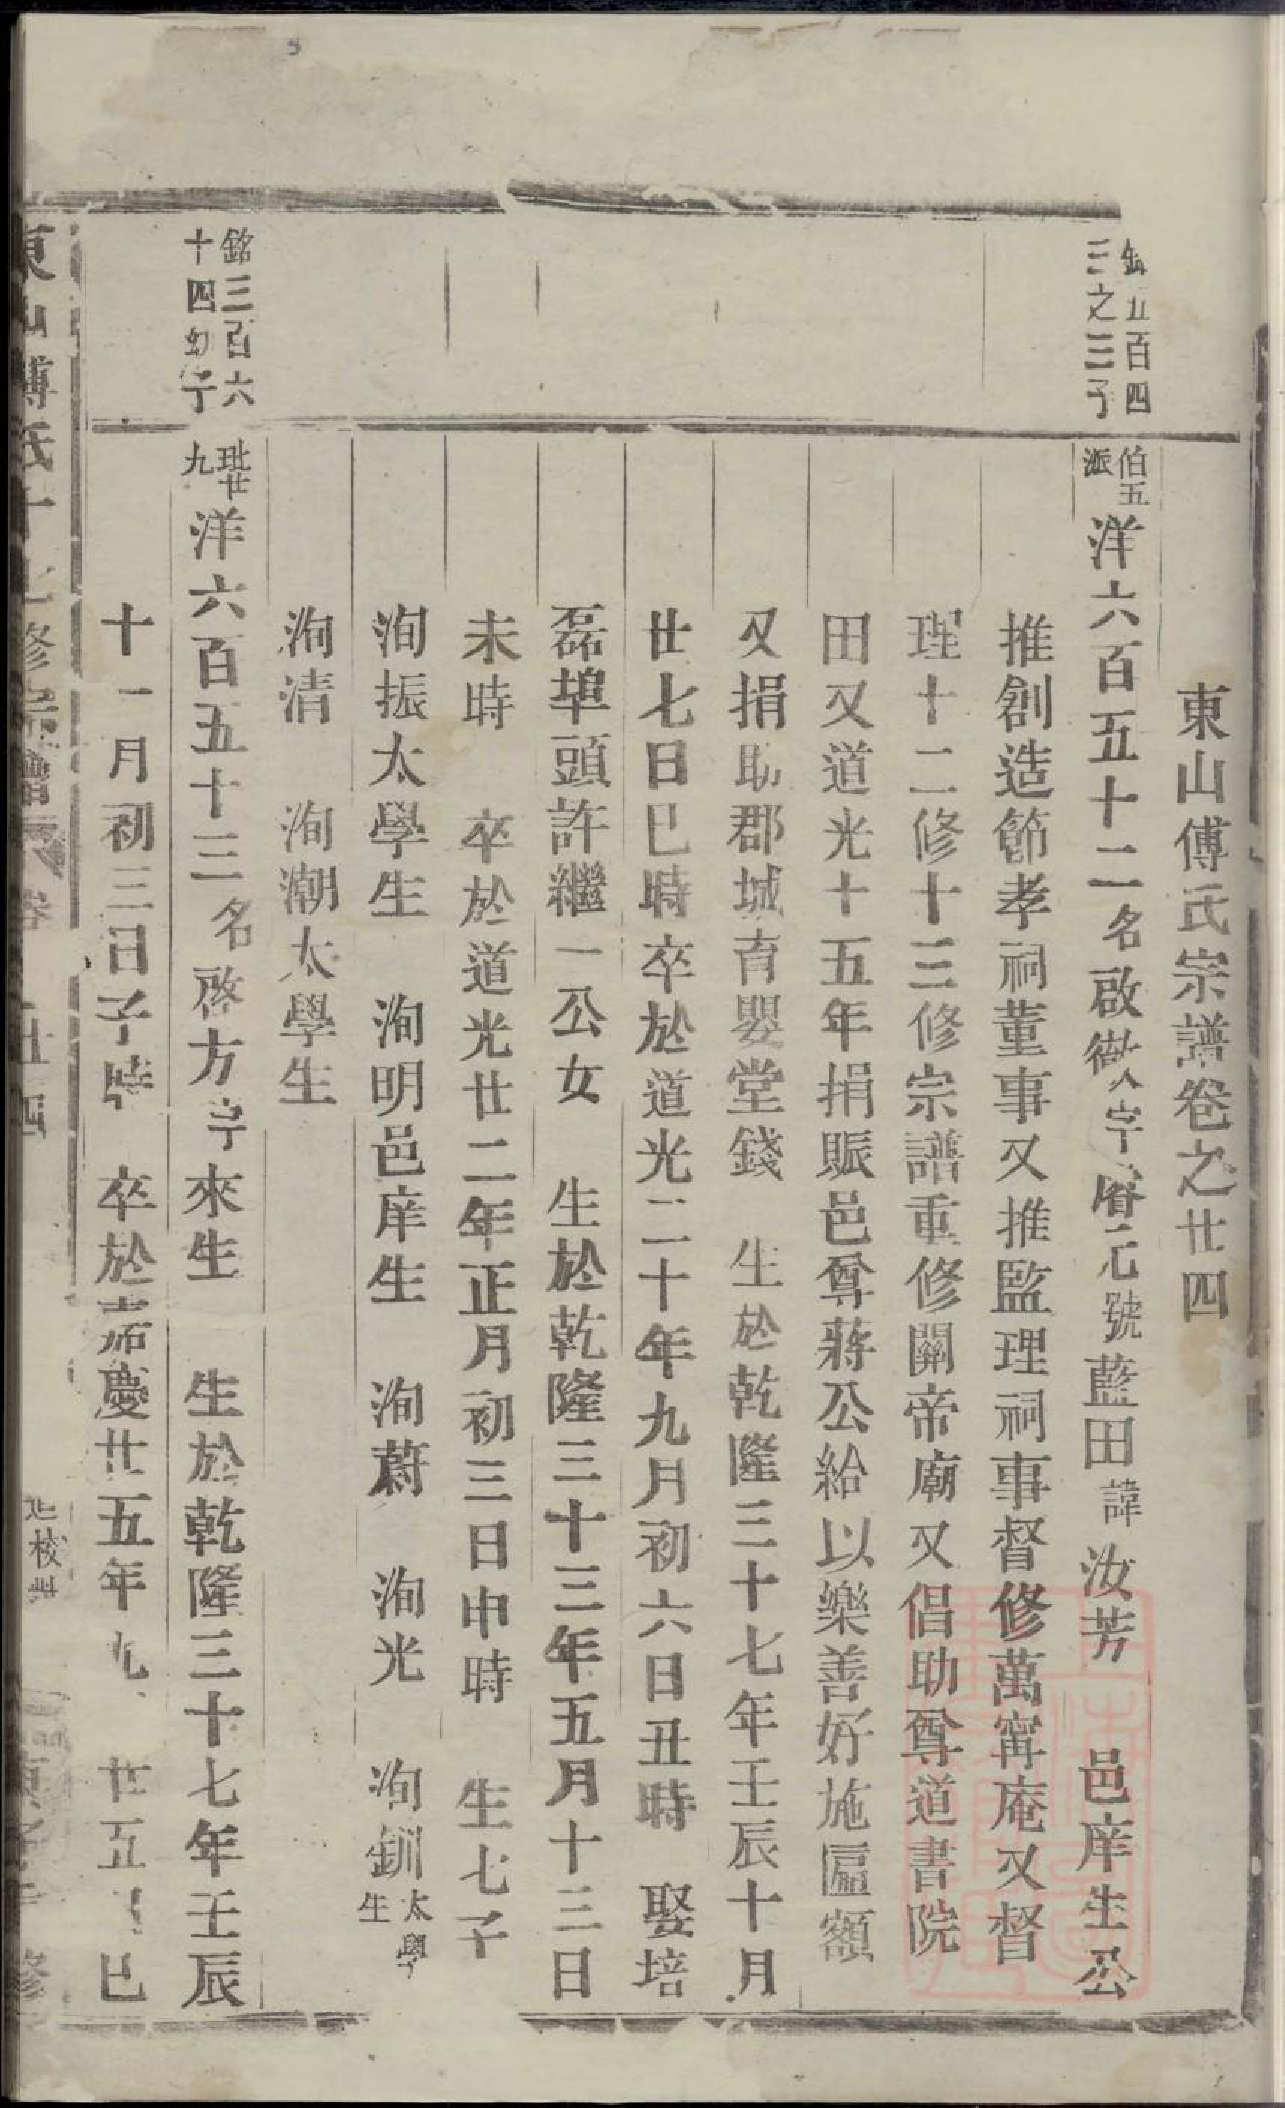 東山傅氏宗譜卷之廿四
五百四
三之三子
伯五
派
洋六百五十二名啟字元號藍田諱汝芳 邑庠生公
推創造節孝祠董事又推監理祠事督修萬甯庵又督
理十二修十三修宗譜重修關帝廟又倡助尊道書院
田又道光十五年捐賑邑尊蔣公給以樂善好施匾額
又捐助郡城育嬰堂錢 生於乾隆三十七年壬辰十月
廿七日巳時卒於道光二十年九月初六日丑時 娶培
磊埠頭許繼一公女 生於乾隆三十三年五月十三日
未時 卒於道光廿二年正月初三日申時 生七子
洵振太學生 洵明邑庠生 洵蔚 洵光 洵釧太學生
洵清 洵潮太學生
銘三百六
十四幼子
玭廿
九
洋六百五十三名啓方字來生 生於乾隆三十七年壬辰
十一月初三日子時 卒於嘉慶廿五年九 廿五日巳
東山傅氏十七修宗譜 卷 廿四